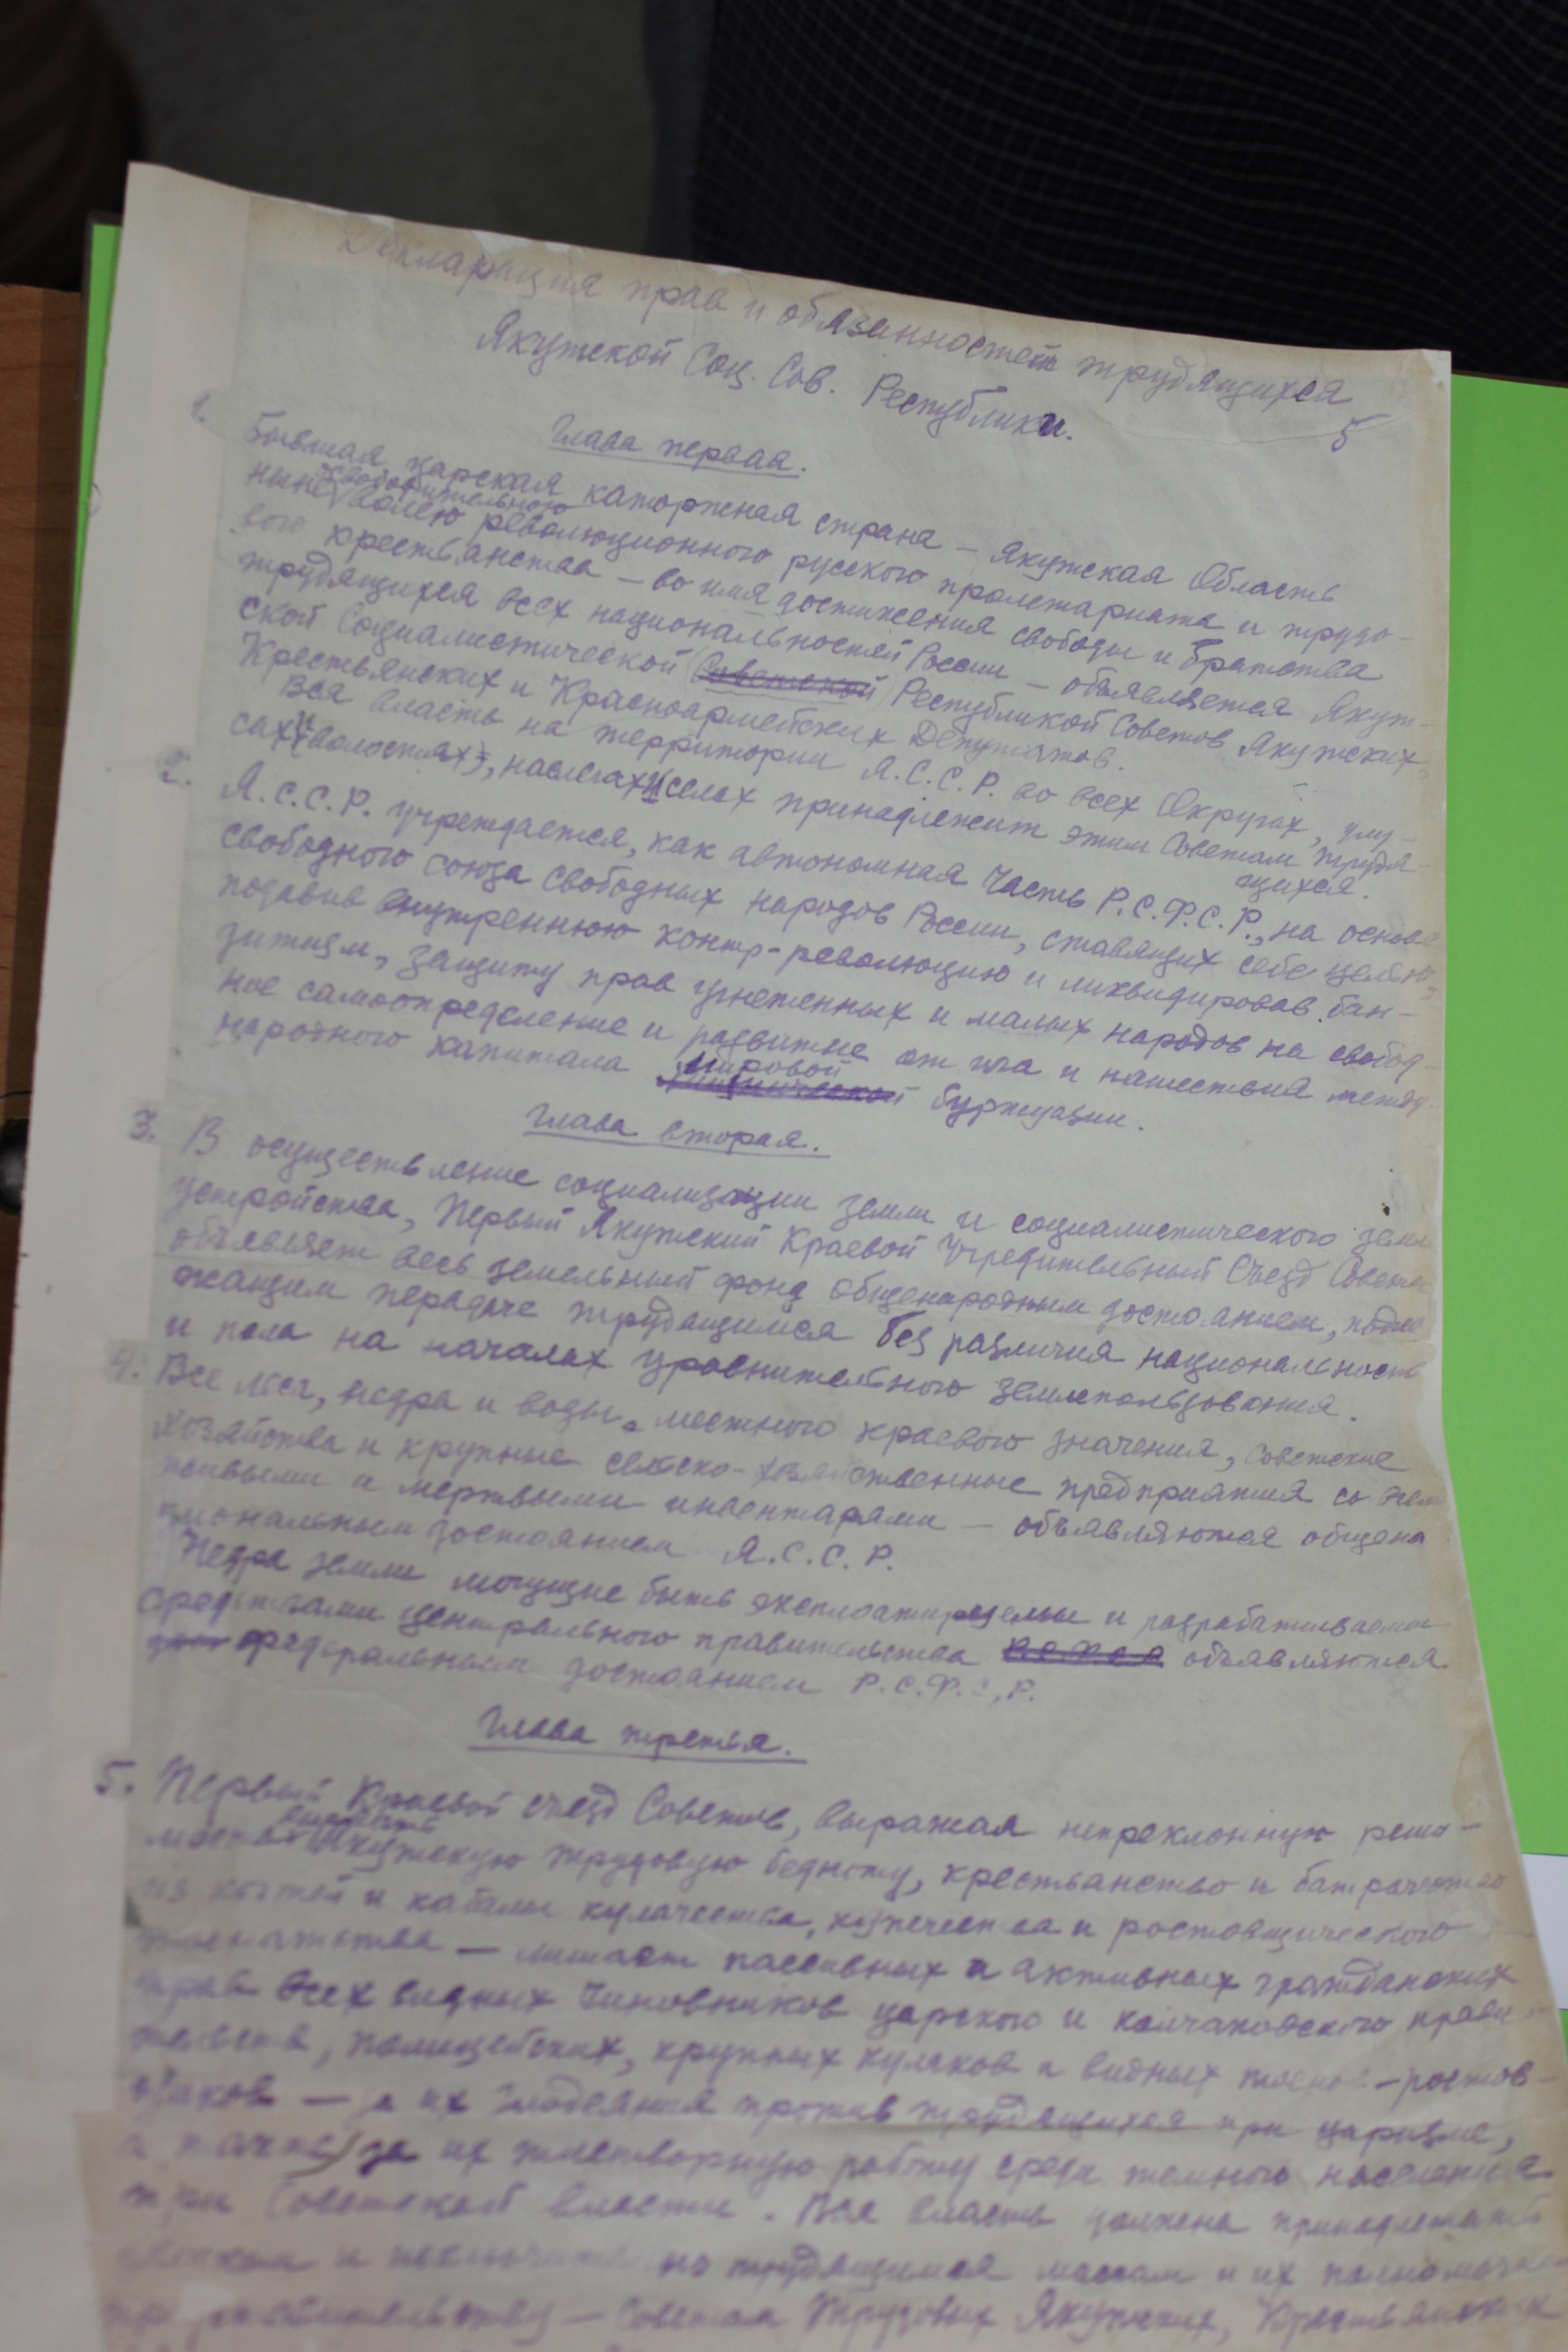 Декларация прав и обязанностей трудящихся
Якутской Соц. Сов. Республики.
5
Глава первая.
1. Бывшая царская каторжная страна – Якутская Область
ныне освободительною волею революционного русского пролетариата и трудо-
вого крестьянства – во имя достижения свободы и братства
трудящихся всех национальностей России – объявляется Якут-
ской Социалистической (Советской) Республикой Советов Якутских,
Крестьянских и Красноармейских Депутатов.
Вся власть на территории Я.С.С.Р. во всех Округах, улу-
сах и волостях, наслегах и селах принадлежит этим Советам трудя-
щихся.
2. Я.С.С.Р. учреждается, как автономная часть Р.С.Ф.С.Р., на основе
свободного союза свободных народов России, ставящих себе целью,
подавив внутреннюю контр-революцию и ликвидировав бан-
дитизм, защиту прав угнетенных и малых народов на свобод-
ное самоопределение и развитие от ига и нашествия между-
народного капитала мировой буржуазии.
Глава вторая.
3. В осуществление социализации земли и социалистического земле
устройства, Первый Якутский Краевой Учредительный Съезд Совета
объявляет весь земельный фонд общенародным достоянием, подле
жащим передаче трудящимся без различия национальност
и пола на началах уравнительного землепользования.
4. Все леса, недра и воды местного краевого значения, советские
хозяйства и крупные сельско-хозяйственные предприятия со всем
живыми и мертвыми инвентарями – объявляются общена
циональным достоянием Я.С.С.Р.
Недра земли могущие быть эксплоатируемы и разрабатываемы
средствами центрального правительства объявляются
федеральным достоянием Р.С.Ф.С.Р.
Глава третья.
5. Первый Краевой съезд Советов, выражая непреклонную решо-
мость Якутскую трудовую бедноту, крестьянство и батрачество
из когтей и кабалы кулачества, купечества и ростовщического
– лишает пассивных и активных гражданских
прав всех видных чиновников царского и колчаковского прави-
тельств, полицейских, крупных кулаков и видных -ростов-
щиков – за их злодеяния против трудящихся при царизме,
а также за их тлетворную работу среди темного населения
при Советской власти. Вся власть должна принадлежать
целиком и исключительно трудящимся массам и их полномочно
му – Советам Трудовых Якутских, Крестьянских